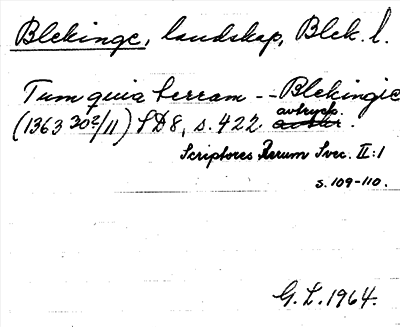 Blekinge, landskap, Blek. l.
Tum quia terram -- Blekingie
(1363 30?/11) SD 8, s. 422 avtryck.
Scriptores Rerum Svec. II:1
s. 109-110.
G. L. 1964.